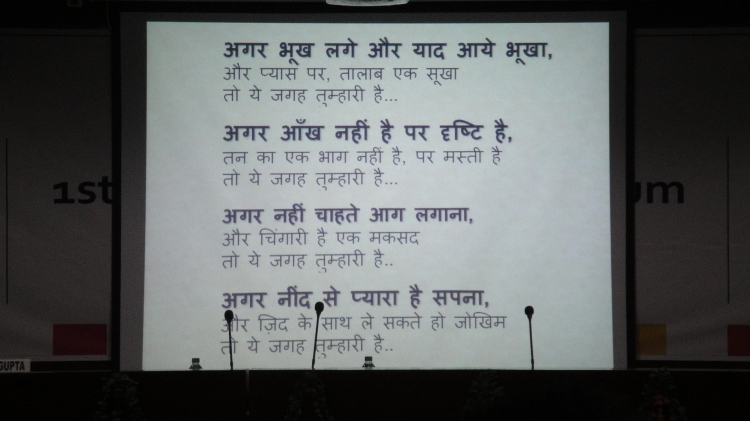 अगर भूख लगे और याद आये भूखा,
और प्यास पर, तालाब एक सूखा
तो ये जगह तुम्हारी है...
अगर आँख नहीं है पर दृष्टि है,
तन का एक भाग नहीं है, पर मस्ती है
तो ये जगह तुम्हारी है...
1st
um
अगर नहीं चाहते आग लगाना,
और चिंगारी है एक मकसद
तो ये जगह तुम्हारी है..
अगर नींद से प्यारा है सपना,
और ज़िद के साथ ले सकते हो जोखिम
तो ये जगह तुम्हारी है..
GUPTA